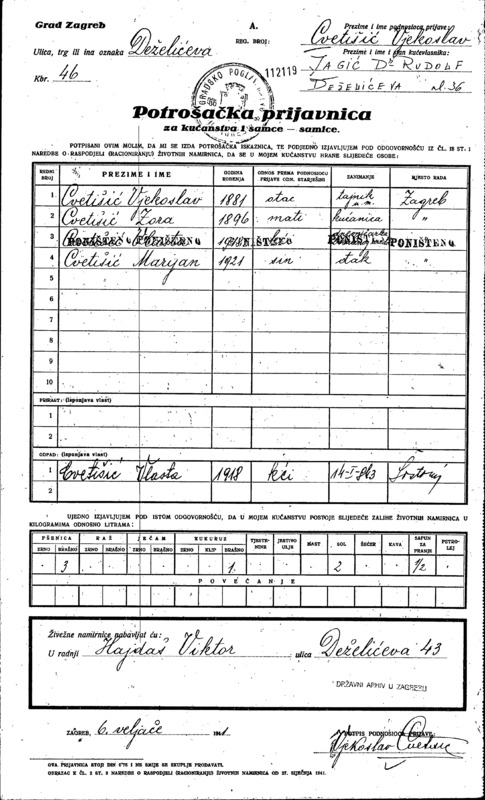 Grad Zagreb
A.
REG. BROJ:
112119
Prezime i ime podnosioca prijave:
Cvetišić Vjekoslav
Ulica, trg ili ina oznaka Deželićeva
Prezime i ime i stan kućevlasnika:
JAGIĆ Dr RUDOLF
Kbr. 46
DEŽELIĆEVA ul. 36
GRADSKO POGLAV
Potrošačka prijavnica
za kućanstva i samce — samice.
POTPISANI OVIM MOLIM, DA MI SE IZDA POTROŠAČKA ISKAZNICA, TE PODJEDNO IZJAVLJUJEM POD ODGOVORNOŠĆU IZ ČL. 18 ST. 1
NAREDBE O RASPODJELI (RACIONIRANJU) ŽIVOTNIH NAMIRNICA, DA SE U MOJEM KUĆANSTVU HRANE SLIJEDEĆE OSOBE:
REDNI BROJ PREZIME I IME GODINA ROĐENJA ODNOS PREMA PODNOSIOCU PRIJAVE ODN. STARJEŠINI ZANIMANJE MJESTO RADA
1 Cvetišić Vjekoslav 1881 otac tajnik Zagreb
2 Cvetišić Zora 1896 mati kućanica "
3 Cvetišić PONIŠTENO PONIŠTENO PONIŠTENO PONIŠTENO
4 Cvetišić Marijan 1921 sin đak "
5
6
7
8
9
10
PRIRAST: (ispunjava vlast)
1
2
OTPAD: (ispunjava vlast)
1 Cvetišić Vlasta 1918 kći 14-I-943
2
UJEDNO IZJAVLJUJEM POD ISTOM ODGOVORNOŠĆU, DA U MOJEM KUĆANSTVU POSTOJE SLIJEDEĆE ZALIHE ŽIVOTNIH NAMIRNICA U
KILOGRAMIMA ODNOSNO LITRAMA:
PŠENICA RAŽ JEČAM KUKURUZ TJESTENINE JESTIVO ULJE MAST SOL ŠEĆER KAVA SAPUN ZA PRANJE PETROLEJ
ZRNO BRAŠNO ZRNO BRAŠNO ZRNO BRAŠNO ZRNO KLIP BRAŠNO
3 1 2 1/2
POVEĆANJE
Živežne namirnice nabavljat ću:
U radnji Hajdaš Viktor ulica Deželićeva 43
DRŽAVNI ARHIV U ZAGREBU
ZAGREB, 6. veljače 1941
POTPIS PODNOSIOCA PRIJAVE:
Vjekoslav Cvetišić
OVA PRIJAVNICA STOJI DIN 0'75 I NE SMIJE SE SKUPLJE PRODAVATI.
OBRAZAC K ČL. 2 ST. 2 NAREDBE O RASPODJELI (RACIONIRANJU) ŽIVOTNIH NAMIRNICA OD 27. SIJEČNJA 1941.